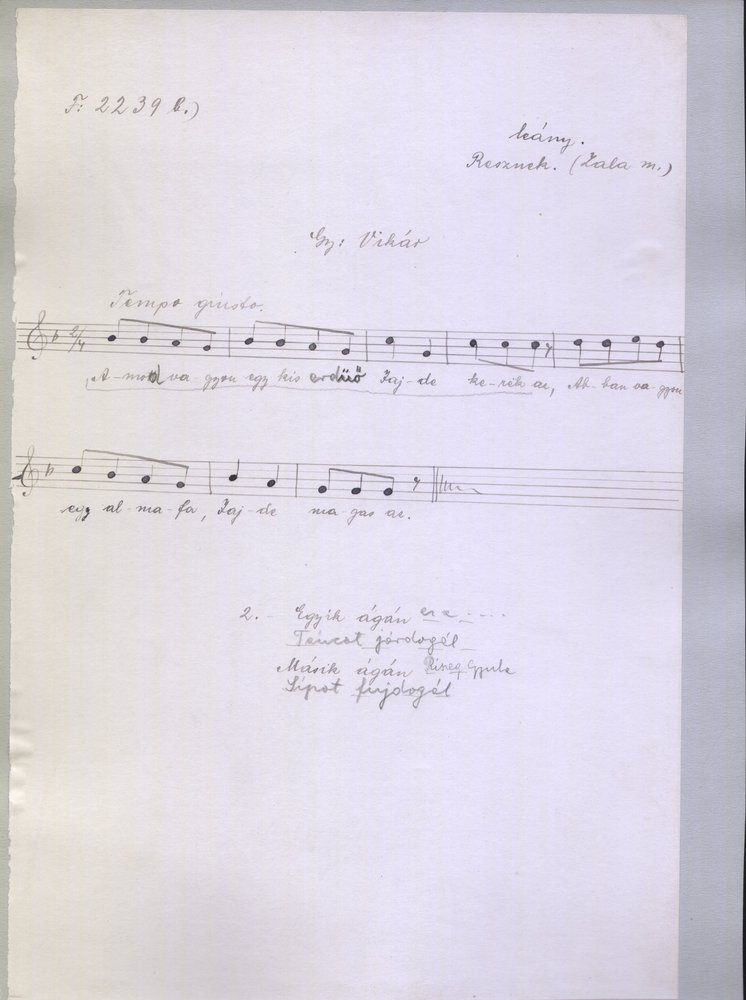 F: 2239 b.)
leány.
Resznek. (Zala m.)
Gy: Vikár
Tempo giusto.
2/4
A-mod va-gyon egy kis erdüö Zaj-de ke-rék ae, Ab-ban va-gyon
egy al-ma-fa, Zaj-de ma-gas ae.
2. - Egyik ágán
járdogél
Másik ágán Gyula
Sípot fujdogél